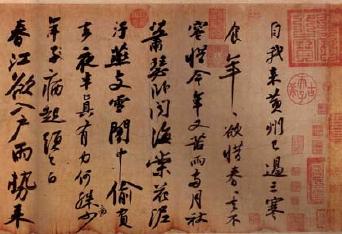 自我来黄州已過三寒
食年〻欲惜春〻去不
容惜今年又苦雨兩月秋
蕭瑟卧聞海棠花泥
汙燕支雪闇中偷負
去夜半真有力何殊病少
年子病起頭已白
春江欲入户雨勢来